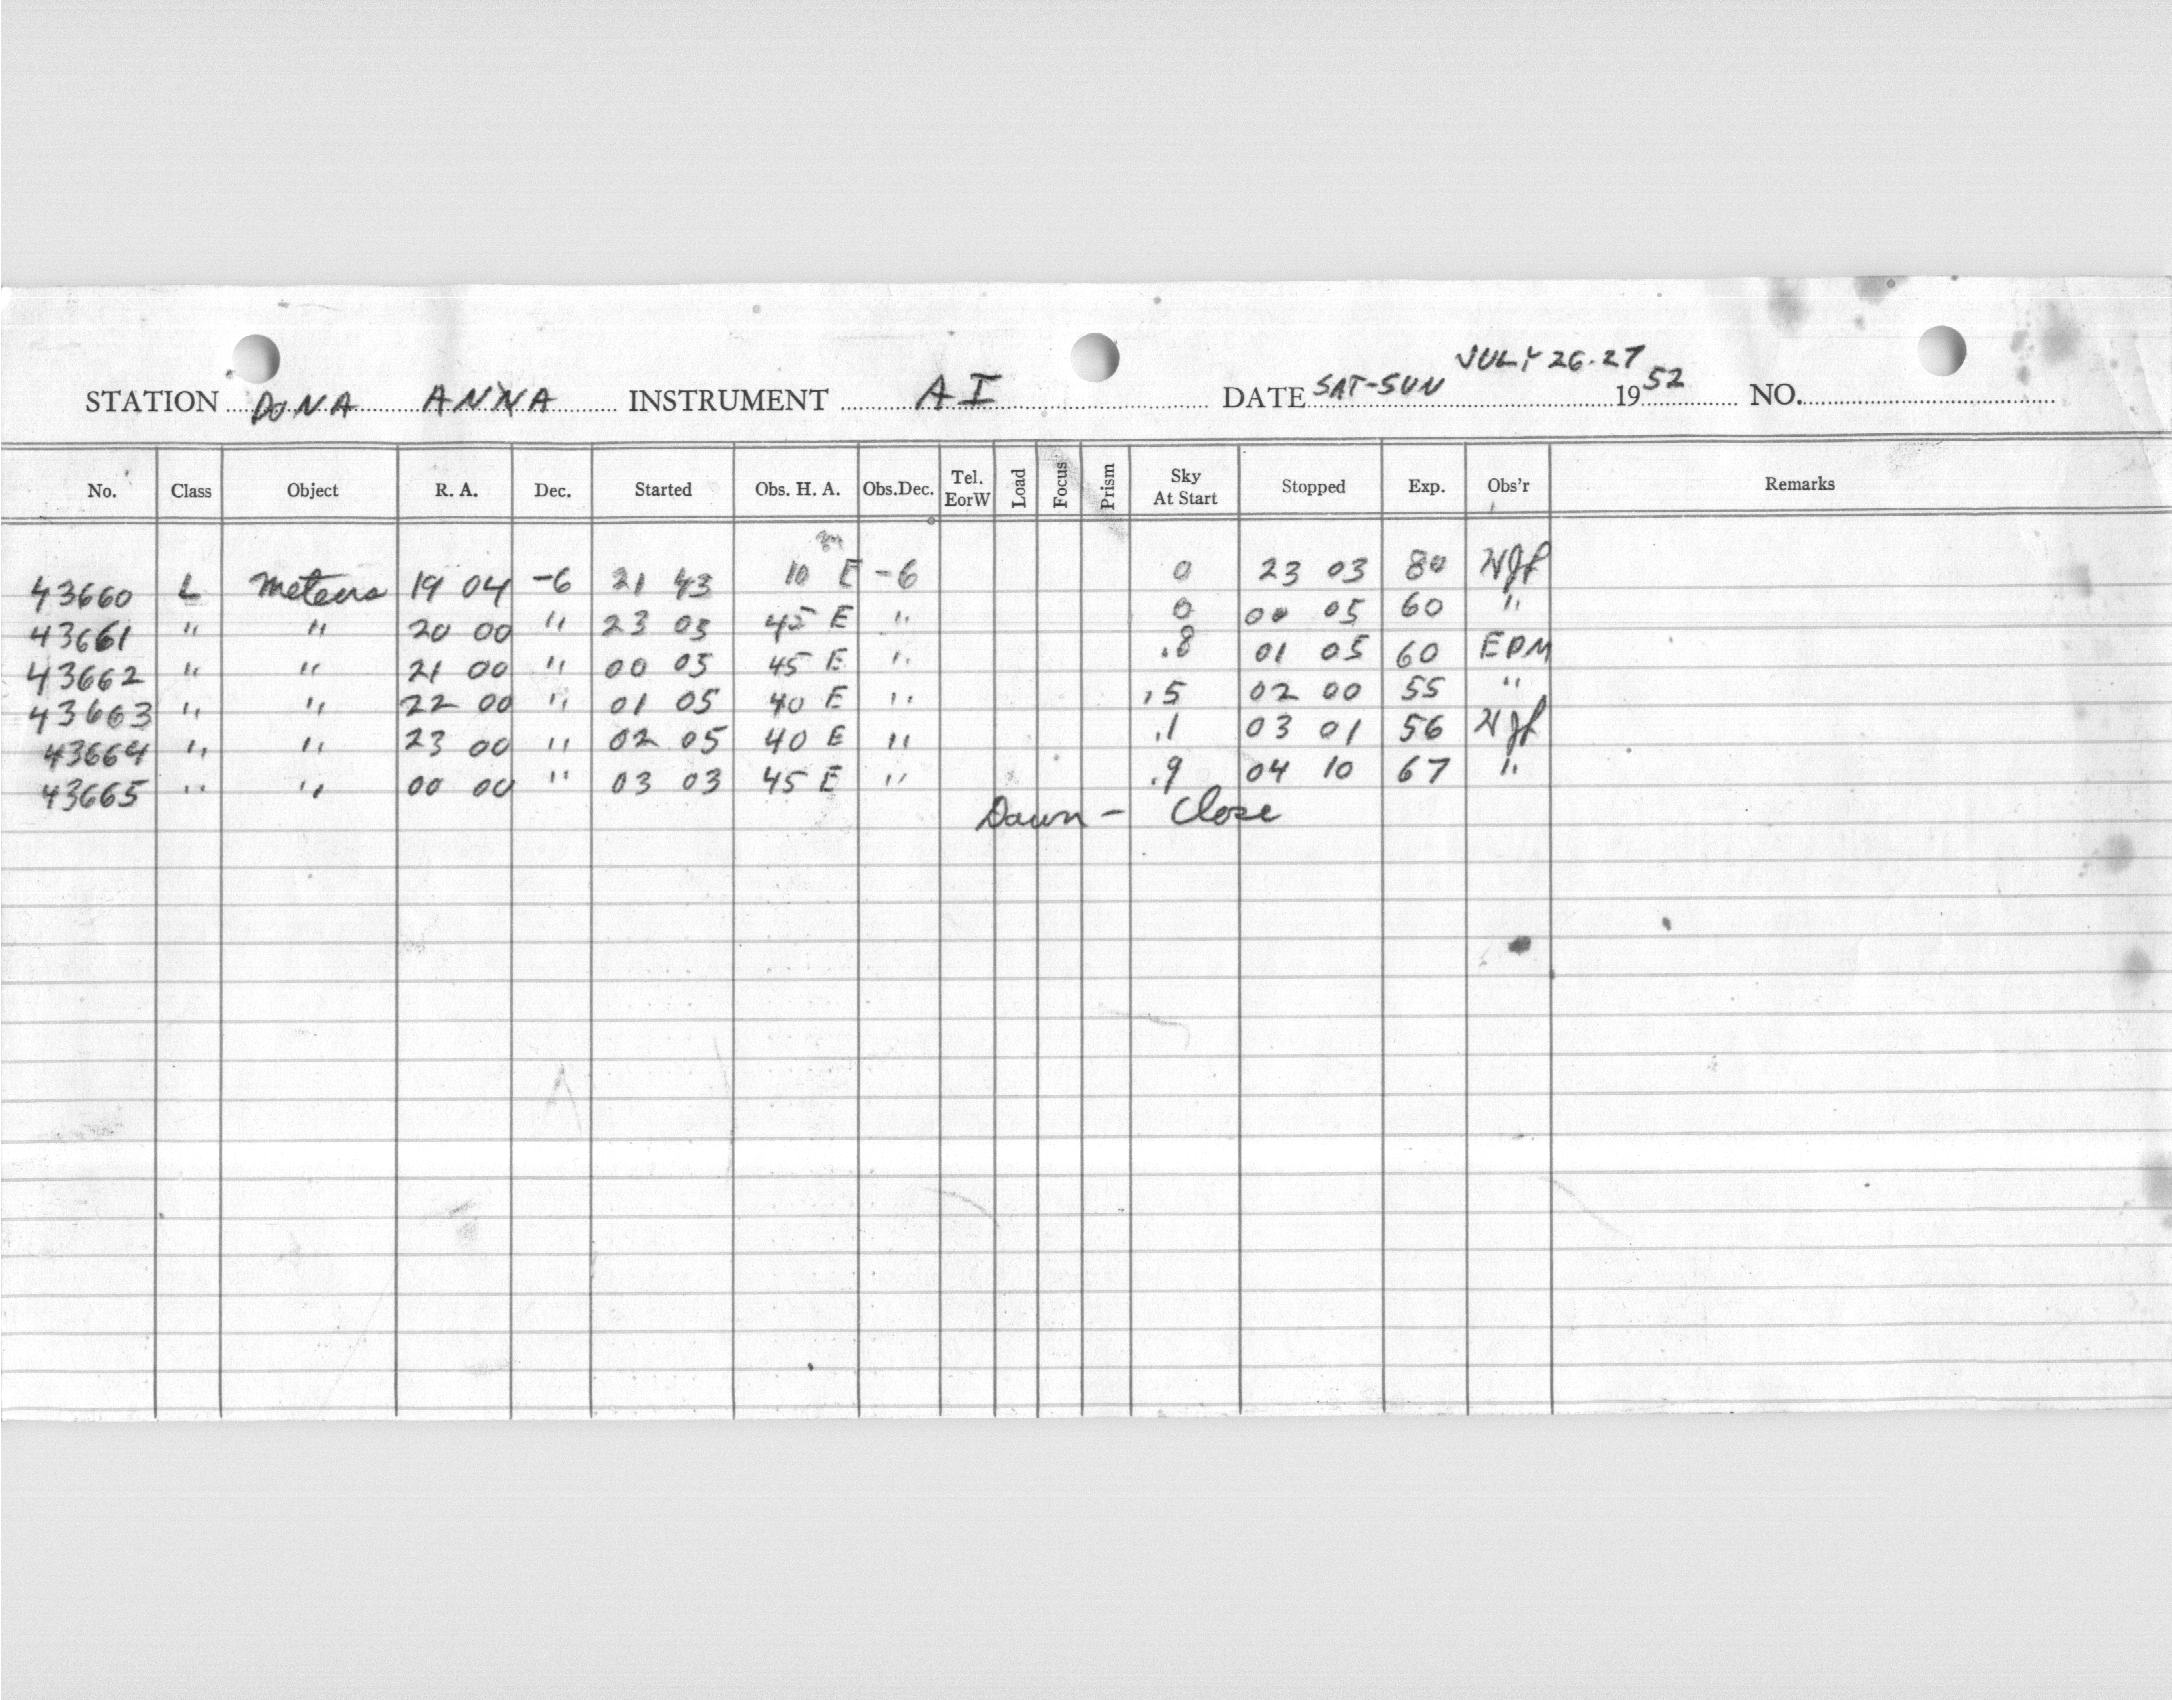 JULY 26-27
STATION DONA ANNA INSTRUMENT AI DATE SAT-SUN 1952 NO.
No. Class Object R. A. Dec. Started Obs. H. A. Obs.Dec. Tel. EorW Load Focus Prism Sky At Start Stopped Exp. Obs'r Remarks
43660 L Meteors 19 04 -6 21 43 10 E -6 0 23 03 80
43661 " " 20 00 " 23 05 45 E " 0 00 05 60 "
43662 " " 21 00 " 00 05 45 E " .8 01 05 60 EPM
43663 " " 22 00 " 01 05 40 E " .5 02 00 55 "
43664 " " 23 00 " 02 05 40 E " .1 03 01 56
43665 " " 00 00 " 03 03 45 E " .9 04 10 67 "
Dawn - Close